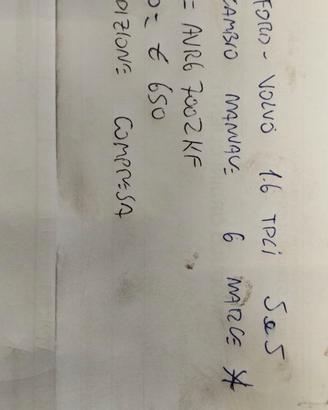 FORD - VOLVO 1.6 TDCI 5e5
CAMBIO MANUALE 6 MARCE *
= AV6R 7002 KF
O = € 650
DIZIONE COMPRESA